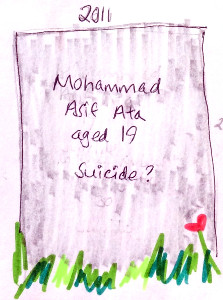 2011
Mohammad
Asif Ata
aged 19
Suicide?